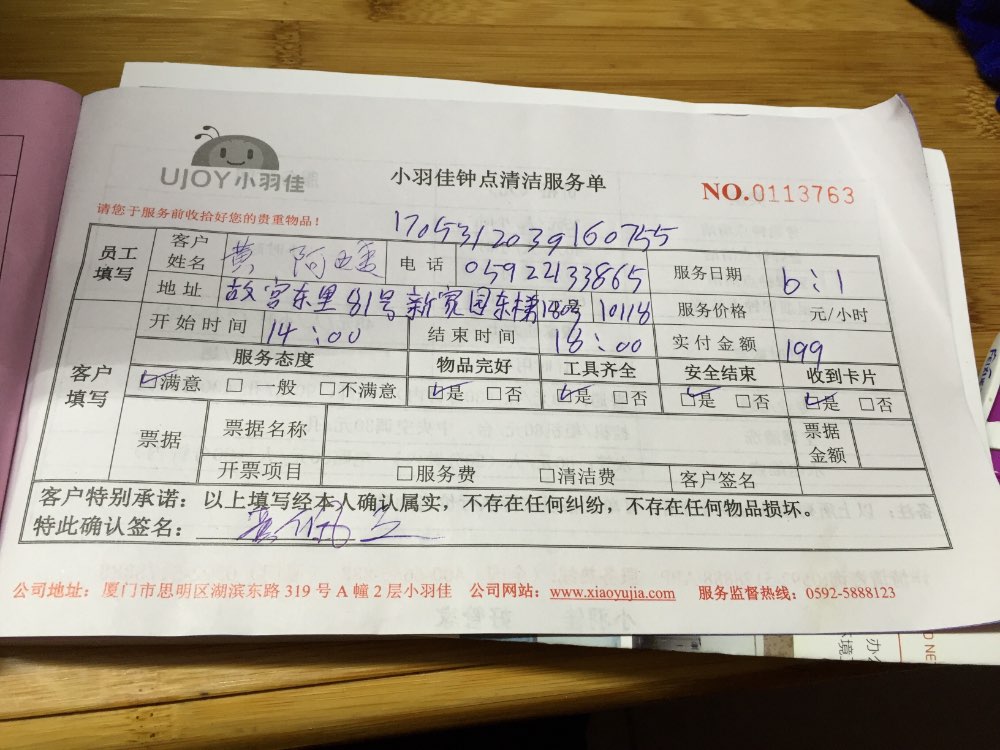 UJOY小羽佳
小羽佳钟点清洁服务单
NO.0113763
请您于服务前收拾好您的贵重物品！
1705312039160755
员工填写 客户姓名 黄 阿 电话 05922133865 服务日期 6:1
地址 故宫东里81号新家园东梯180号 10118 服务价格 元/小时
开始时间 14:00 结束时间 18:00 实付金额 199
客户填写 服务态度 物品完好 工具齐全 安全结束 收到卡片
☑满意 □一般 □不满意 ☑是 □否 ☑是 □否 ☑是 □否 ☑是 □否
票据 票据名称 票据金额
开票项目 □服务费 □清洁费 客户签名
客户特别承诺：以上填写经本人确认属实，不存在任何纠纷，不存在任何物品损坏。
特此确认签名：
公司地址：厦门市思明区湖滨东路 319 号 A 幢 2 层小羽佳 公司网站：www.xiaoyujia.com 服务监督热线：0592-5888123